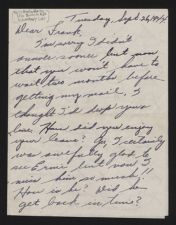 Tuesday, Sept 26, 1944
Dear Frank,
I'm sorry I didn't
answer sooner but now
that you won't have to
wait two months before
getting my mail, I
thought I'd drop you a
line. How did you enjoy
your leave? Gee, I certainly
was awfully glad to
see Ernie but now I
miss him so much!!
How is he? Did he
get back in time?